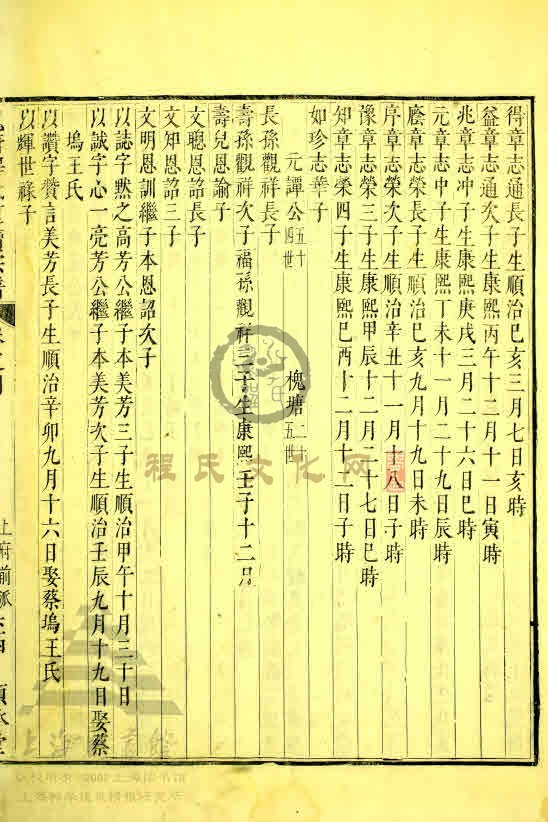 得章志通長子生順治己亥三月七日亥時
益章志通次子生康熙丙午十二月十一日寅時
兆章志冲子生康熙庚戌三月二十六日巳時
元章志中子生康熙丁未十一月二十九日辰時
麐章志榮長子生順治己亥九月十九日未時
序章志榮次子生順治辛丑十一月十八日子時
豫章志榮三子生康熙甲辰十二月二十七日巳時
知章志榮四子生康熙己丙十二月十一日子時
如珍志華子
元譚公五十四世 槐塘二十五世
長孫觀祥長子
壽孫觀祥次子福孫觀祥三子生康熙壬子十二月
壽兒恩諭子
文聰恩詔長子
文知恩詔三子
文明恩訓繼子本恩詔次子
以誌字黙之高芳公繼子本美芳三子生順治甲午十月三十日
以誠字心一亮芳公繼子本美芳次子生順治壬辰九月十九日娶蔡
塢王氏
以讚字賛言美芳長子生順治辛卯九月十六日娶蔡塢王氏
以輝世祿子
上府前派
程氏文化网
上海圖書館